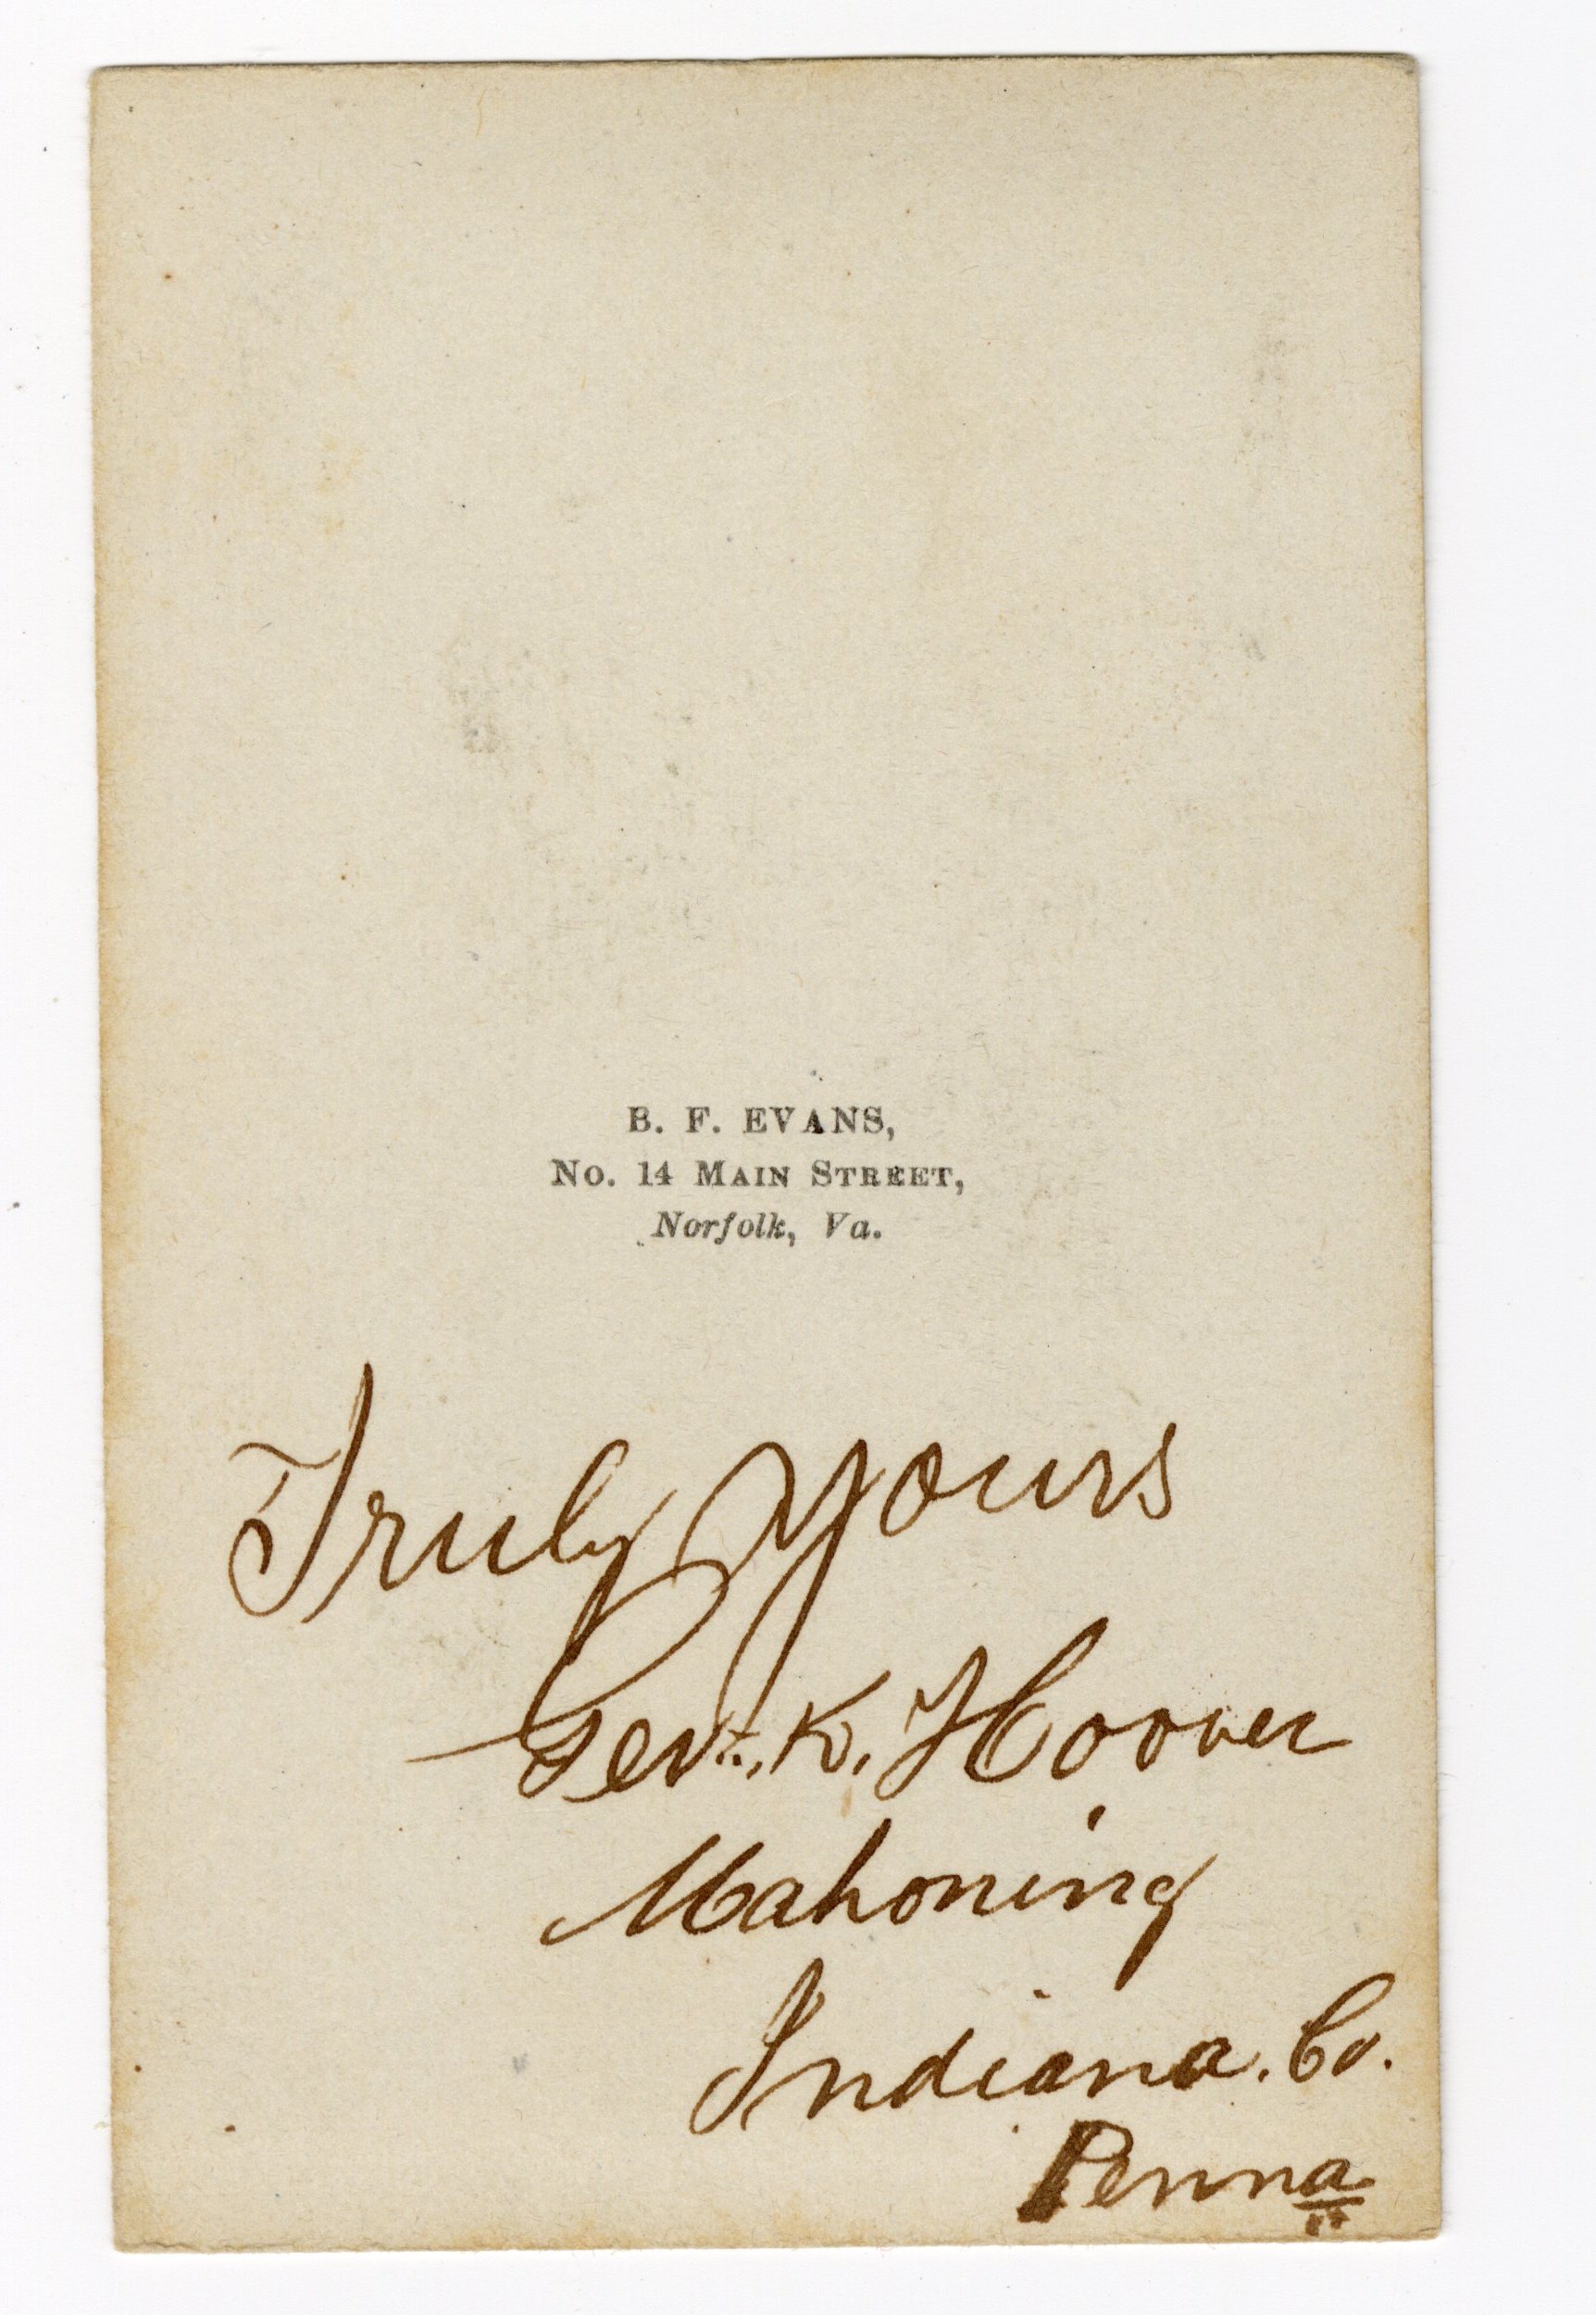 B. F. EVANS,
No. 14 MAIN STREET,
Norfolk, Va.
Truly Yours
K. Hoover
Mahoning
Indiana. Co.
Penna